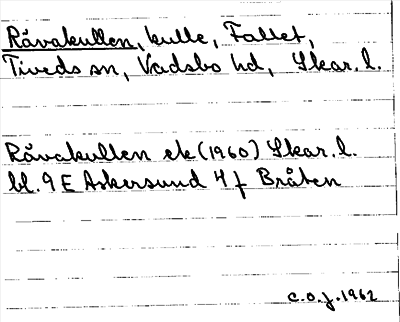 Råvakullen, kulle, Fallet,
Tiveds sn, Vadsbo hd, Skar. l.
Råvakullen ek (1960) Skar. l.
bl. 9 E Askersund 4 f Bråten
C.O.J. 1962